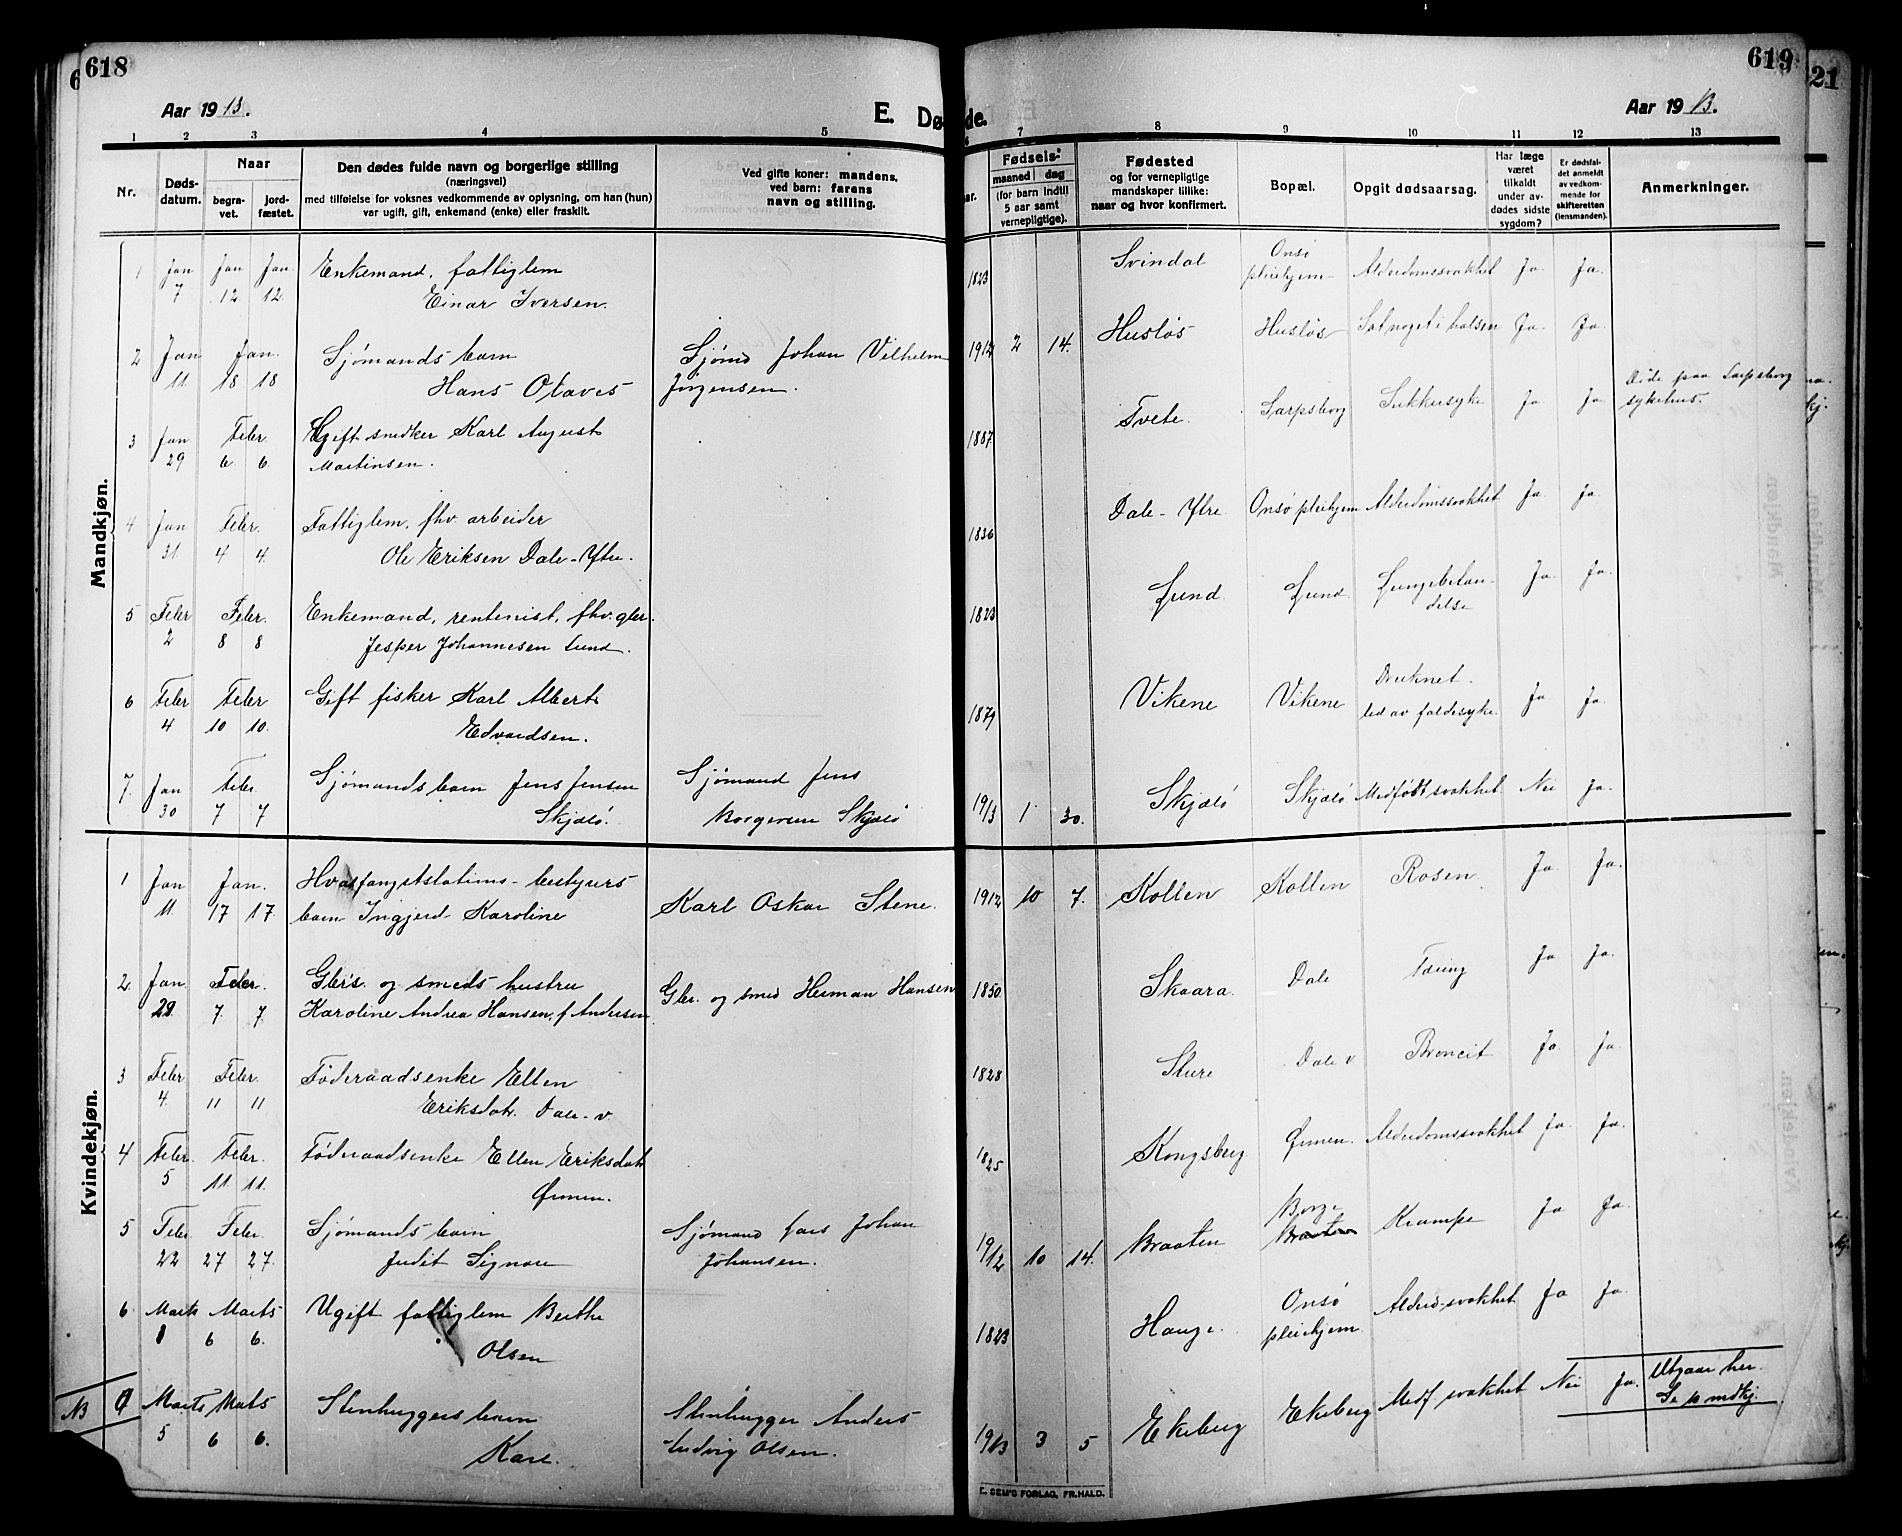 618
Aar 1913.
E. Dø
1 2 3 4 5
Nr.
Døds-
datum.
Naar
begra-
vet.
jord-
fæstet.
Den dødes fulde navn og borgerlige stilling
(næringsvei)
med tilføielse for voksnes vedkommende av oplysning, om han (hun)
var ugift, gift, enkemand (enke) eller fraskilt.
Ved gifte koner: mandens,
ved barn: farens
navn og stilling.
Mandkjøn.
1 Jan Jan Jan Enkemand, fattiglem
7 12 12 Einar Iversen.
2 Jan Jan. Sjømands barn Sjømd Johan Vilhelm
11. 18 18 Hans Otavis Jørgensen.
3 Jan Febr. Ugift snedker Karl August
29 6. 6. Martinsen.
4 Jan Febr. Fattiglem, fhv. arbeider
31. 4 4. Ole Eriksen Dale-Ytre.
5 Febr Febr. Enkemand, rentenist, fhv. gbr.
2 8 8 Jesper Johannesen Lund.
6 Febr Febr Gift fisker Karl Albert
4 10 10. Edvardsen.
7. Jan Febr. Sjømands barn Jens Jensen Sjømand Jens
30 7 7 Skjælø. Borgersen Skjælø
Kvindekjøn.
1 Jan Jan. Hvalfangststations-bestyrers
11. 17 17. barn Ingjerd Karoline Karl Oskar Stene.
2. Jan Febr. Gbr's. og smeds hustru Gbr. og smed Herman Hansen
28. 7. 7. Karoline Andrea Hansen, f. Andersen
3 Febr Febr. Føderaadsenke Ellen
4. 11 11 Eriksdtr. Dale-v.
4 Febr. Febr. Føderaadsenke Ellen Eriksdatr
5 11 11. Ørmen.
5 Febr Febr. Sjømands barn Sjømand Lars Johan
22 27 27. Judit Signore Johansen.
6 Marts Marts Ugift fattiglem Berthe
1 6 6. Olsen
NB Marts Marts Stenhuggers barn Stenhugger Anders
5 6 6. Kare. Ludvig Olsen.
619
21
de.
Aar 1913.
6 7 8 9 10 11 12 13
ar.
Fødsels-
maaned dag
(for barn indtil
5 aar samt
vernepligtige).
Fødested
og for vernepligtige
mandskaper tillike:
naar og hvor konfirmert.
Bopæl.
Opgit dødsaarsag.
Har læge
været
tilkaldt
under av-
dødes sidste
sygdom?
Er dødsfal-
det anmeldt
av vedkom-
mende for
skifteretten
(lensmanden).
Anmerkninger.
1823 Svindal Onsø
pleiehjem Alderdomssvakhet Ja. Ja.
1912 2 14. Husløs Husløs Sat noget i halsen Ja. Ja.
1887 Tvete. Sarpsborg Sukkersyke Ja Ja Døde paa Sarpsborg
sykehus.
1836 Dale-Ytre Onsø pleiehjem Alderdomssvakhet Ja Ja.
1823 Lund Lund Lungebetæn-
delse Ja Ja.
1879 Vikene Vikene Druknet.
led av faldesyke. Ja Ja.
1913 1 30. Skjælø Skjælø Medfødt svakhet. Nei Ja.
1912 10 7. Kollen Kollen Rosen. Ja. Ja.
1850 Skaara. Dale Tæring Ja Ja.
1828 Sture Dale v Broncit Ja. Ja.
1825 Kongsberg Ørmen. Alderdomssvakhet Ja. Ja.
1912 10 14. Braaten Borge
Braaten Krampe Ja Ja.
1823 Hauge. Onsø
pleiehjem. Alderd.svakhet Ja Ja.
1913 3 5 Ekeberg Ekeberg Medf. svakhet Nei Ja. Utgaar her.
Se mdkj.
E. SEM'S FORLAG, FR.HALD.